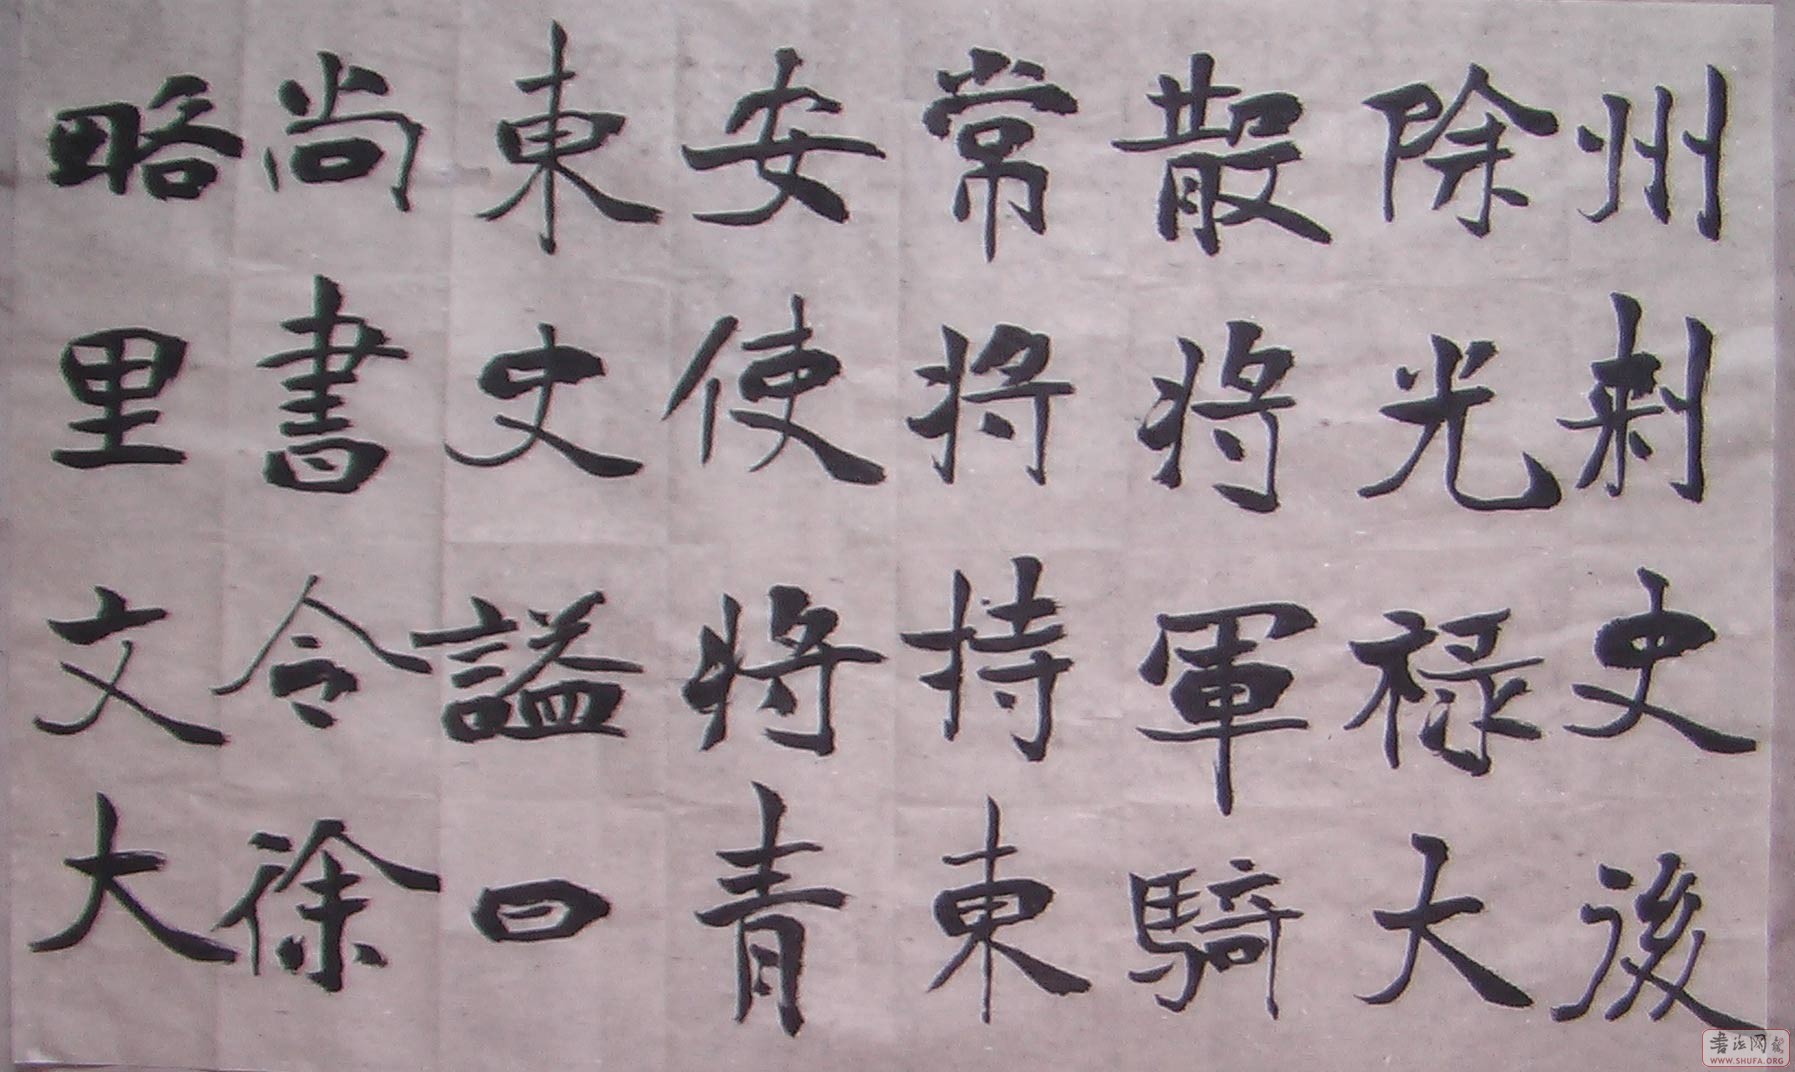 州刺史後
除光禄大
散将軍騎
常将持東
安使将青
東史謚曰
尚書令徐
略里文大
書法网
WWW.SHUFA.ORG